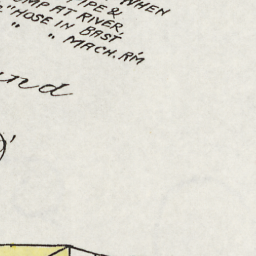 WHEN
PIPE &
UMP AT RIVER,
"HOSE IN BAST
" " MACH. R'M
nd